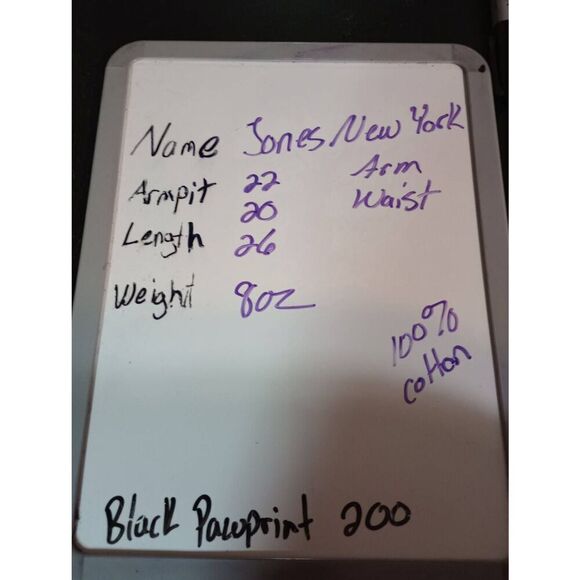 Name Jones New York
Armpit 22 Arm
20 Waist
Length 26
Weight 8oz
100%
cotton
Black Pawprint 200